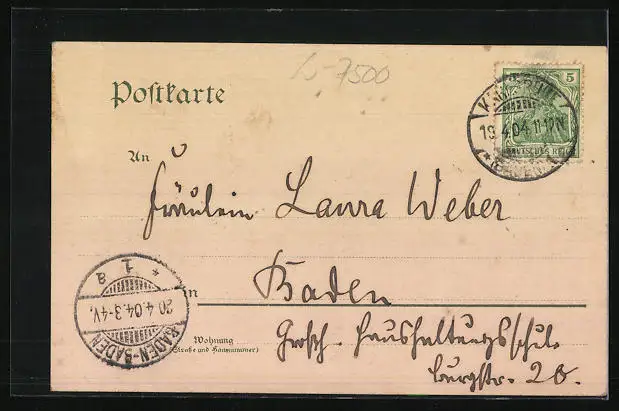 W-7500
Postkarte
5
DEUTSCHES REICH
KARLSRUHE
19.4.04.11-12V.
* (BADEN) 1.
An
Fräulein Laura Weber
in Baden
Wohnung
(Straße und Hausnummer)
Großh. Haushaltungsschule
burgstr. 20.
* 1 a
20.4.04.3-4V.
BADEN-BADEN